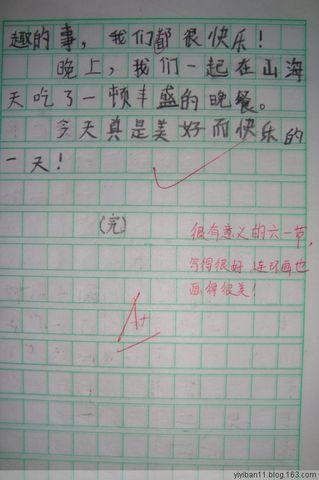 趣的事，我们都很快乐！
晚上，我们一起在山海
天吃了一顿丰盛的晚餐。
今天真是美好而快乐的
一天！
(完)
很有意义的六一节，
写得很好，连环画也
画得很美！
A+
yiyiban11.blog.163.com